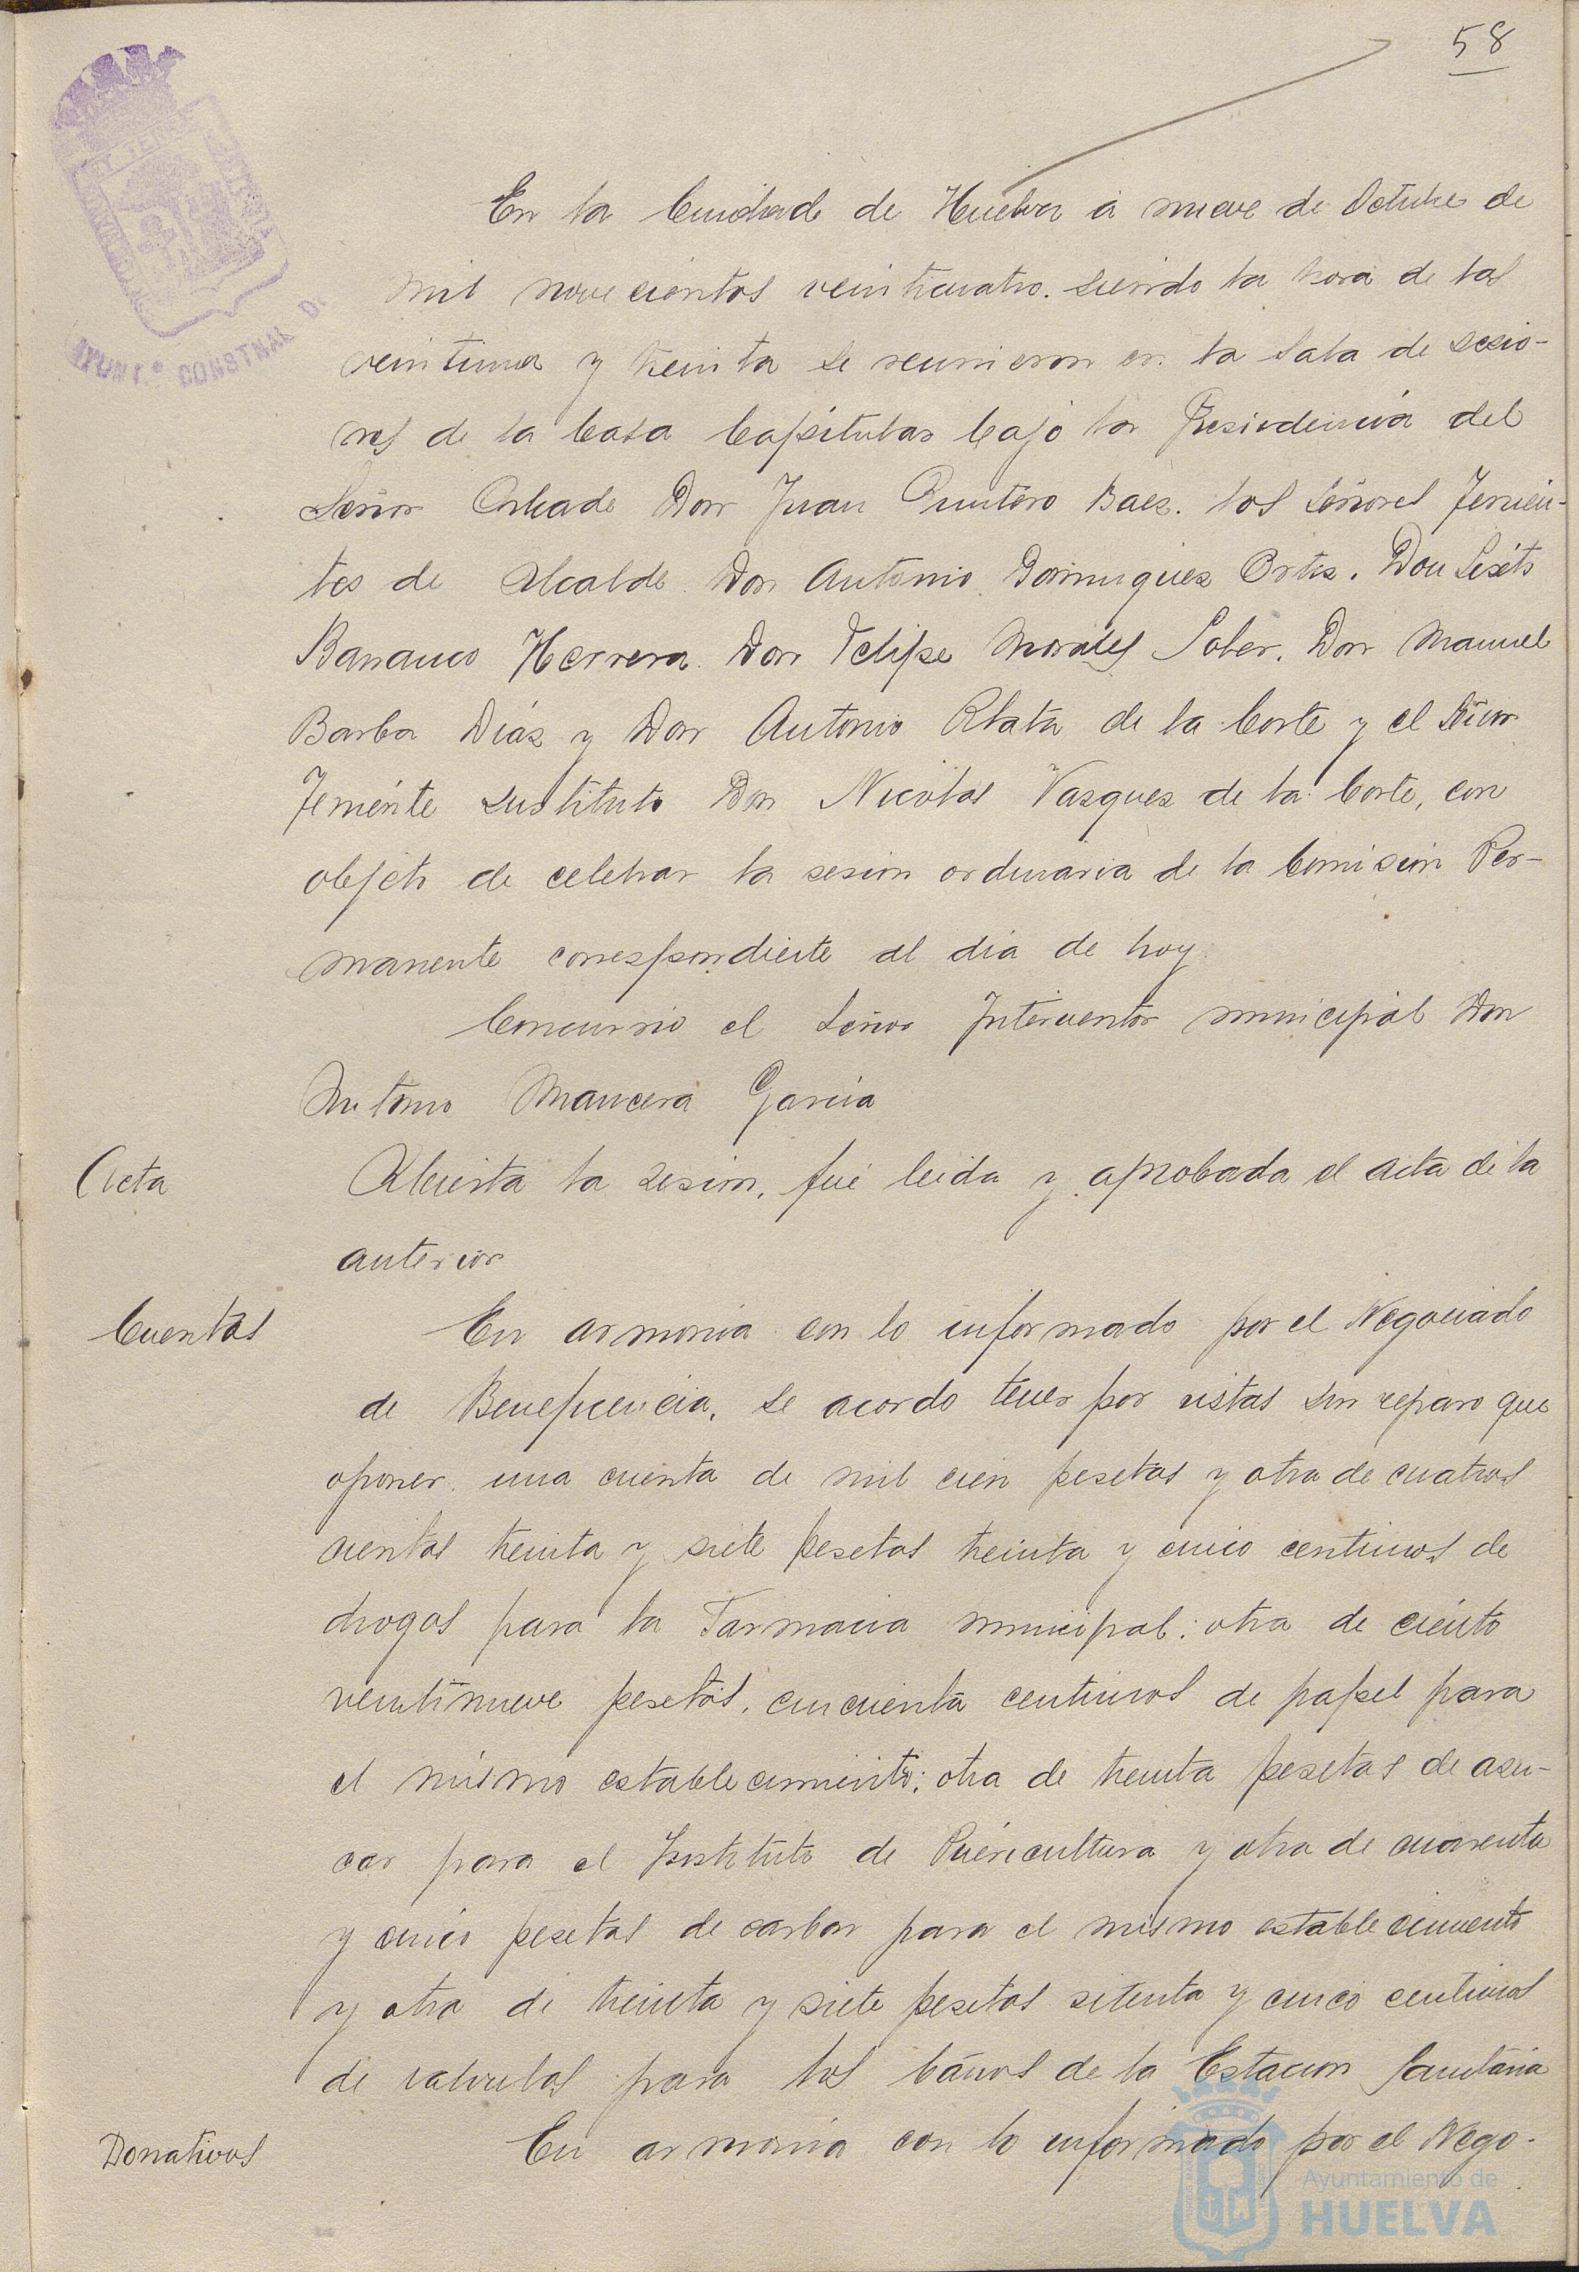 58
AYUNT.º CONSTNAL D
En la Ciudad de Huelva á nueve de Octubre de
mil novecientos veinticuatro. siendo la hora de las
veintiuna y treinta se reunieron en la Sala de sesio-
nes de la Casa Capitular bajo la Presidencia del
Señor Alcalde Don Juan Quintero Baez. los Señores Tenien-
tes de Alcalde Don Antonio Dominguez Ortiz. Don Sixto
Barranco Herrera. Don Felipe Morales Soler. Don Manuel
Barba Diáz y Don Antonio Plata de la Corte y el Señor
Teniénte sustituto Don Nicolas Vazquez de la Corte, con
objeto de celebrar la sesion ordinaria de la Comisión Per-
manente correspondiente al dia de hoy.
Concurrio el Señor Interventor municipal Don
Antonio Mancera Garcia
Acta
Abierta la sesion, fué leida y aprobada el acta de la
anterior
Cuentas
En armonia con lo informado por el Negociado
de Beneficencia, se acordo tener por vistas sin reparo que
oponer. una cuenta de mil cien pesetas y otra de cuatros
cientas treinta y siete pesetas treinta y cinco centimos de
drogas para la Farmacia municipal: otra de ciento
veintinueve pesetas. cincuenta centimos de papel para
el mismo establecimiento: otra de treinta pesetas de azu-
car para el Instituto de Puéricultura y otra de cuarenta
y cinco pesetas de carbon para el mismo establecimiento
y otra de treinta y siete pesetas setenta y cinco centimos
de valvulas para los baños de la Estacion Sanitária
Donativos
En armonia con lo informado por el Nego-
Ayuntamiento de
HUELVA